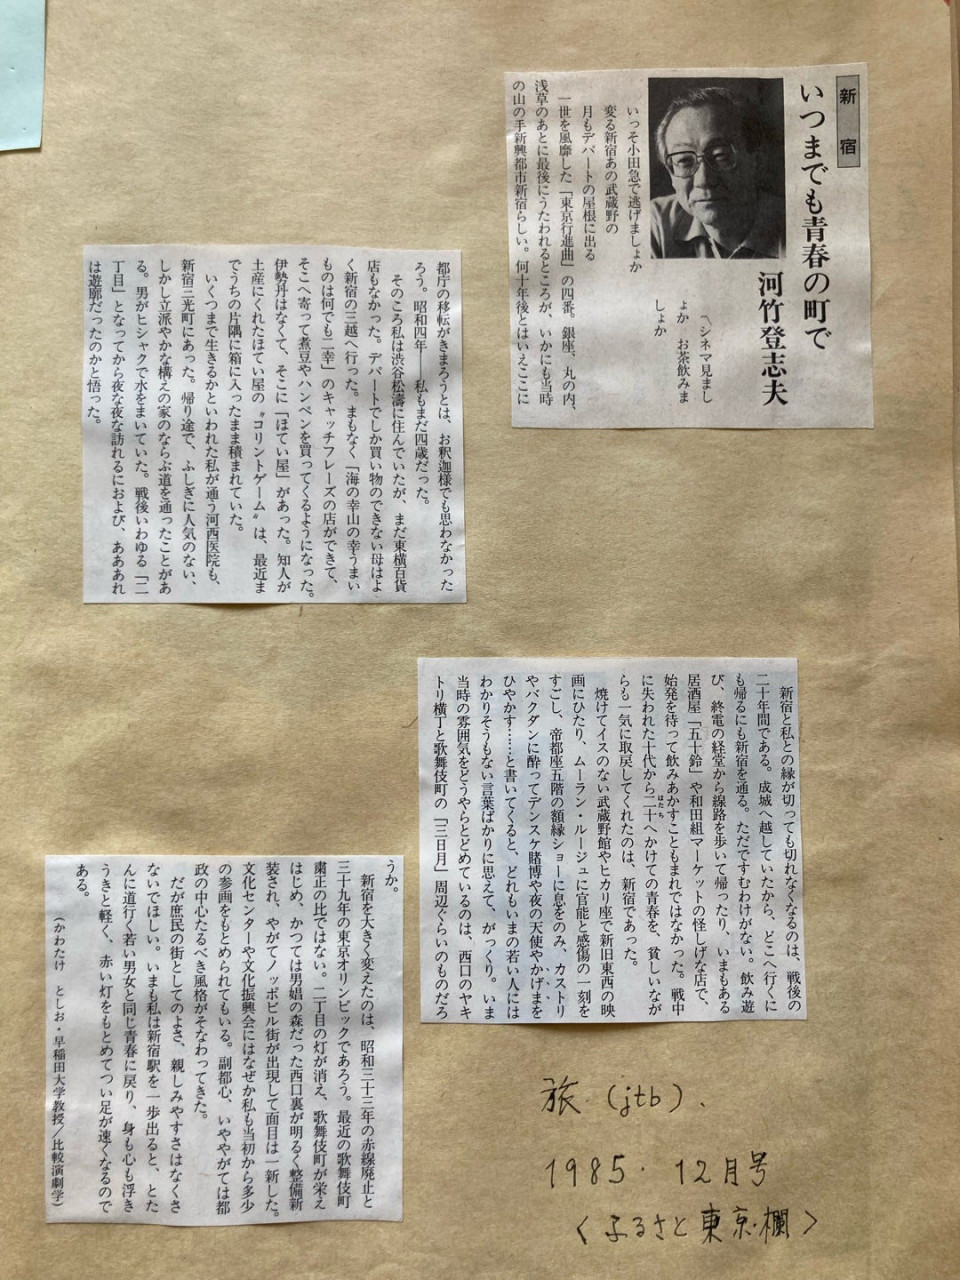 新宿
いつまでも青春の町で
河竹登志夫
〽シネマ見まし
ょか お茶飲みま
しょか
いっそ小田急で逃げましょか
変る新宿あの武蔵野の
月もデパートの屋根に出る
一世を風靡した「東京行進曲」の四番。銀座、丸の内、
浅草のあとに最後にうたわれるところが、いかにも当時
の山の手新興都市新宿らしい。何十年後とはいえここに
都庁の移転がきまろうとは、お釈迦様でも思わなかった
ろう。昭和四年――私もまだ四歳だった。
そのころ私は渋谷松濤に住んでいたが、まだ東横百貨
店もなかった。デパートでしか買い物のできない母はよ
く新宿の三越へ行った。まもなく「海の幸山の幸うまい
ものは何でも二幸」のキャッチフレーズの店ができて、
そこへ寄って煮豆やハンペンを買ってくるようになった。
伊勢丹はなくて、そこに「ほてい屋」があった。知人が
土産にくれたほてい屋の〝コリントゲーム〟は、最近ま
でうちの片隅に箱に入ったまま積まれていた。
いくつまで生きるかといわれた私が通う河西医院も、
新宿三光町にあった。帰り途で、ふしぎに人気のない、
しかし立派やかな構えの家のならぶ道を通ったことがあ
る。男がヒシャクで水をまいていた。戦後いわゆる「二
丁目」となってから夜な夜な訪れるにおよび、あああれ
は遊廓だったのかと悟った。
新宿と私との縁が切っても切れなくなるのは、戦後の
二十年間である。成城へ越していたから、どこへ行くに
も帰るにも新宿を通る。ただですむわけがない。飲み遊
び、終電の経堂から線路を歩いて帰ったり、いまもある
居酒屋「五十鈴」や和田組マーケットの怪しげな店で、
始発を待って飲みあかすこともまれではなかった。戦中
に失われた十代から二十へかけての青春を、貧しいなが
はたち
らも一気に取戻してくれたのは、新宿であった。
焼けてイスのない武蔵野館やヒカリ座で新旧東西の映
画にひたり、ムーラン・ルージュに官能と感傷の一刻を
すごし、帝都座五階の額縁ショーに息をのみ、カストリ
やバクダンに酔ってデンスケ賭博や夜の天使やかげまを
ひやかす……と書いてくると、どれもいまの若い人には
わかりそうもない言葉ばかりに思えて、がっくり。いま
当時の雰囲気をどうやらとどめているのは、西口のヤキ
トリ横丁と歌舞伎町の「三日月」周辺ぐらいのものだろ
うか。
新宿を大きく変えたのは、昭和三十三年の赤線廃止と
三十九年の東京オリンピックであろう。最近の歌舞伎町
粛正の比ではない。二丁目の灯が消え、歌舞伎町が栄え
はじめ、かつては男娼の森だった西口裏が明るく整備新
装され、やがてノッポビル街が出現して面目は一新した。
文化センターや文化振興会にはなぜか私も当初から多少
の参画をもとめられてもいる。副都心、いややがては都
政の中心たるべき風格がそなわってきた。
だが庶民の街としてのよさ、親しみやすさはなくさ
ないでほしい。いまも私は新宿駅を一歩出ると、とた
んに道行く若い男女と同じ青春に戻り、身も心も浮き
うきと軽く、赤い灯をもとめてつい足が速くなるので
ある。
（かわたけ としお・早稲田大学教授／比較演劇学）
旅 (jtb).
1985. 12月号
〈ふるさと東京欄〉